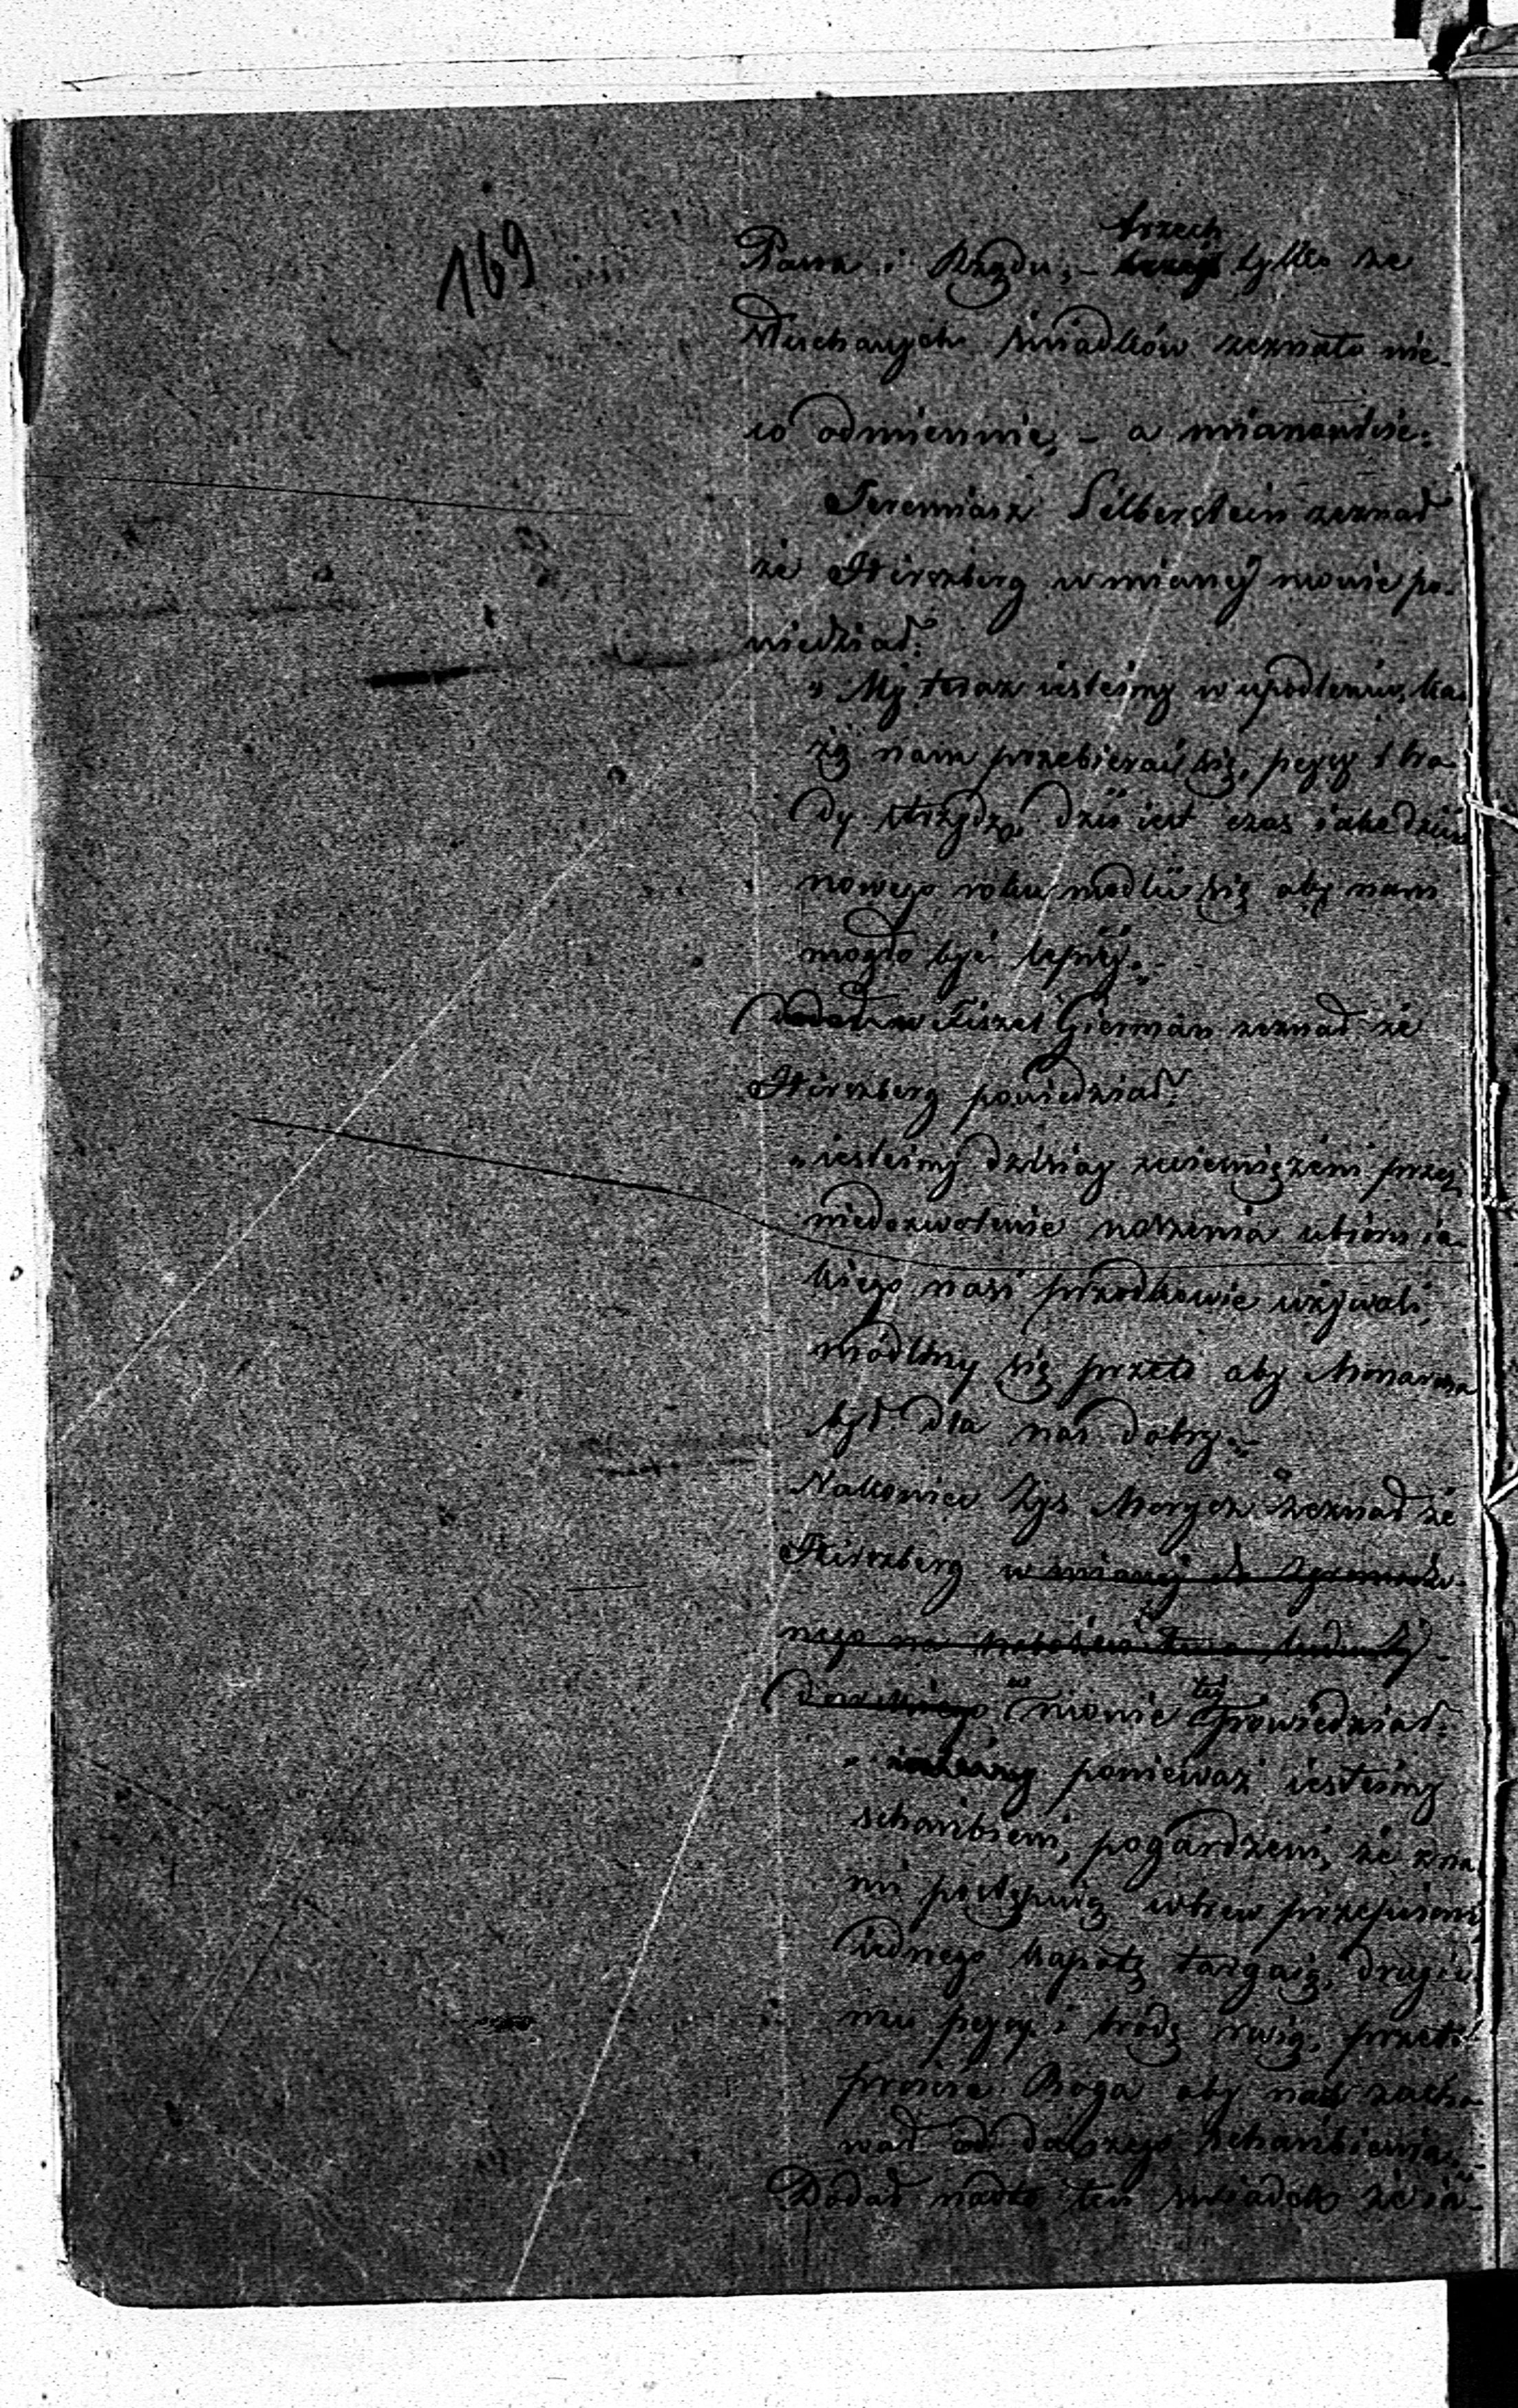 169
trzech
Pana i Rządu, – tylko ze
słuchanych świadków zeznało nie-
co odmiennie, – a mianowicie:
Jeremiasz Silberstein zeznał
że Hirszberg w mianej mowie po-
wiedział:
„My teraz iesteśmy w upodleniu, ka-
żą nam przebierać się, peysy i bro-
dy strzydz, dziś iest czas iako dzień
nowego roku modlić się aby nam
mogło być lepiej.„
Fiszel Gierman zeznał że
Hirszberg powiedział:
„iesteśmy dzisiay zwiemiężeni przez
niedozwolenie noszenia ubioru ia-
kiego nasi przodkowie używali,
módlmy się przeto aby Monarcha
był dla nas dobry.„
Nakoniec Zys Morycz zeznał że
Hirszberg w mianej do
nego na
w mowie tej powiedział:
„ ponieważ iesteśmy
schańbieni, pogardzeni, że z na-
mi postępuią wbrew przepisom,
iednego kapotę targaią, drugie-
mu peysy i brodę rwią, przeto
proście Boga aby nas zacho-
wał od dalszego schańbienia.„
Dodał nadto ten świadek że ia-